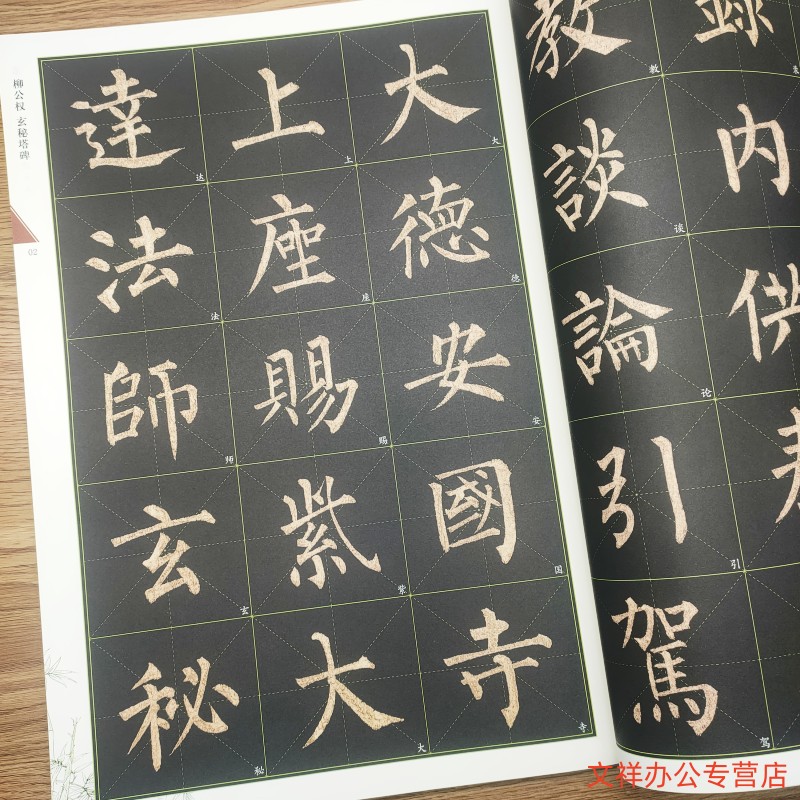 柳公权 玄秘塔碑
02
大德安國寺
大德安国寺
上座賜紫大
上座赐紫大
達法師玄秘
达法师玄秘
錄内供
教談論引駕
教谈论引驾
文祥办公专营店